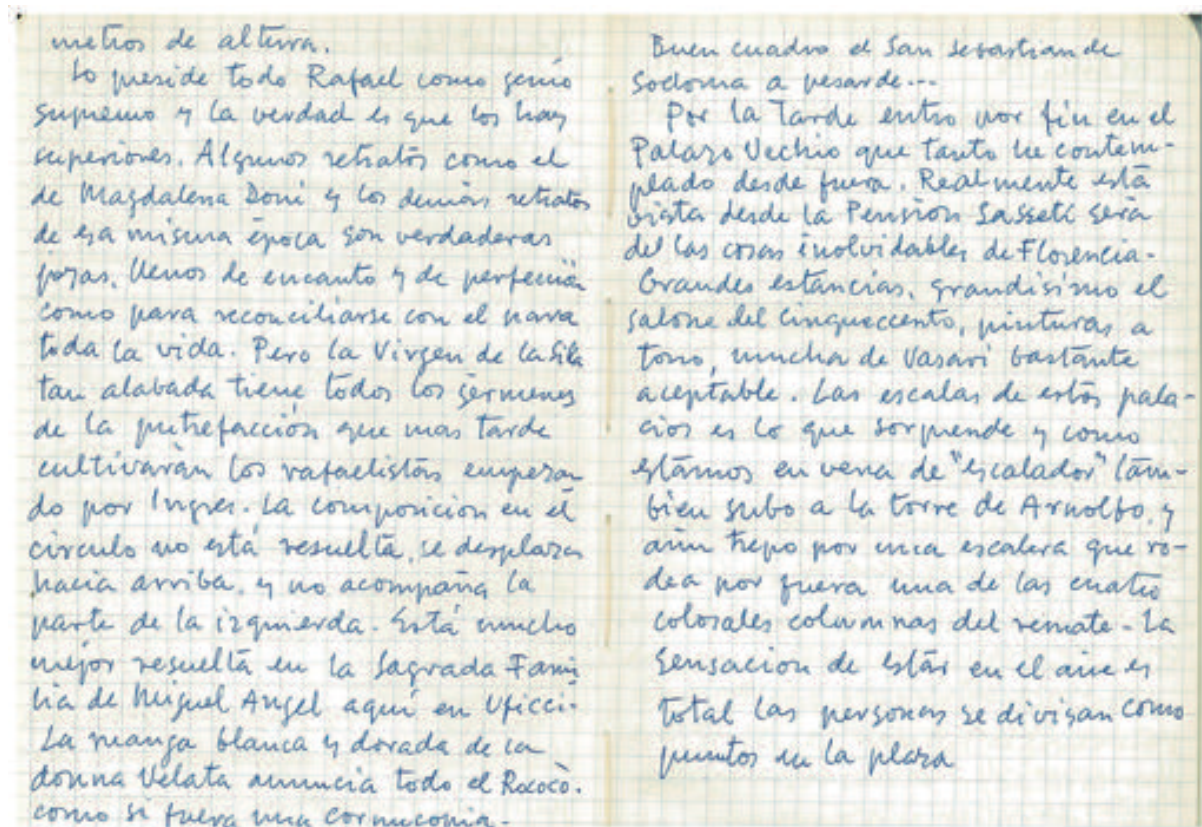 metros de altura.
Lo preside todo Rafael como genio
supremo y la verdad es que los hay
superiores. Algunos retratos como el
de Magdalena Doni y los demás retratos
de esa misma época son verdaderas
joyas, llenos de encanto y de perfección
como para reconciliarse con el para
toda la vida. Pero la Virgen de la Silla
tan alabada tiene todos los gérmenes
de la putrefacción que mas tarde
cultivarán los rafaelistas empezan
do por Ingres. La composicion en el
circulo no está resuelta, se desplaza
hacia arriba, y no acompaña la
parte de la izquierda. Está mucho
mejor resuelta en la Sagrada Fami
lia de Miguel Angel aquí en Uficci.
La manga blanca y dorada de la
donna Velata anuncia todo el Rococò.
como si fuera una cornucopia.
Buen cuadro el San Sebastian de
Sodoma a pesar de...
Por la tarde entro por fin en el
Palazo Vechio que tanto he contem-
plado desde fuera. Realmente esta
vista desde la Pension Sasseti será
de las cosas inolvidables de Florencia.
Grandes estancias, grandisimo el
salone del Cinqueccento, pinturas a
tono, mucha de Vasari bastante
aceptable. Las escalas de estos pala-
cios es lo que sorprende y como
estamos en vena de "escalador" tam-
bien subo a la torre de Arnolfo, y
aún trepo por una escalera que ro-
dea por fuera una de las cuatro
colosales columnas del remate. La
sensacion de estar en el aire es
total las personas se divisan como
puntos en la plaza